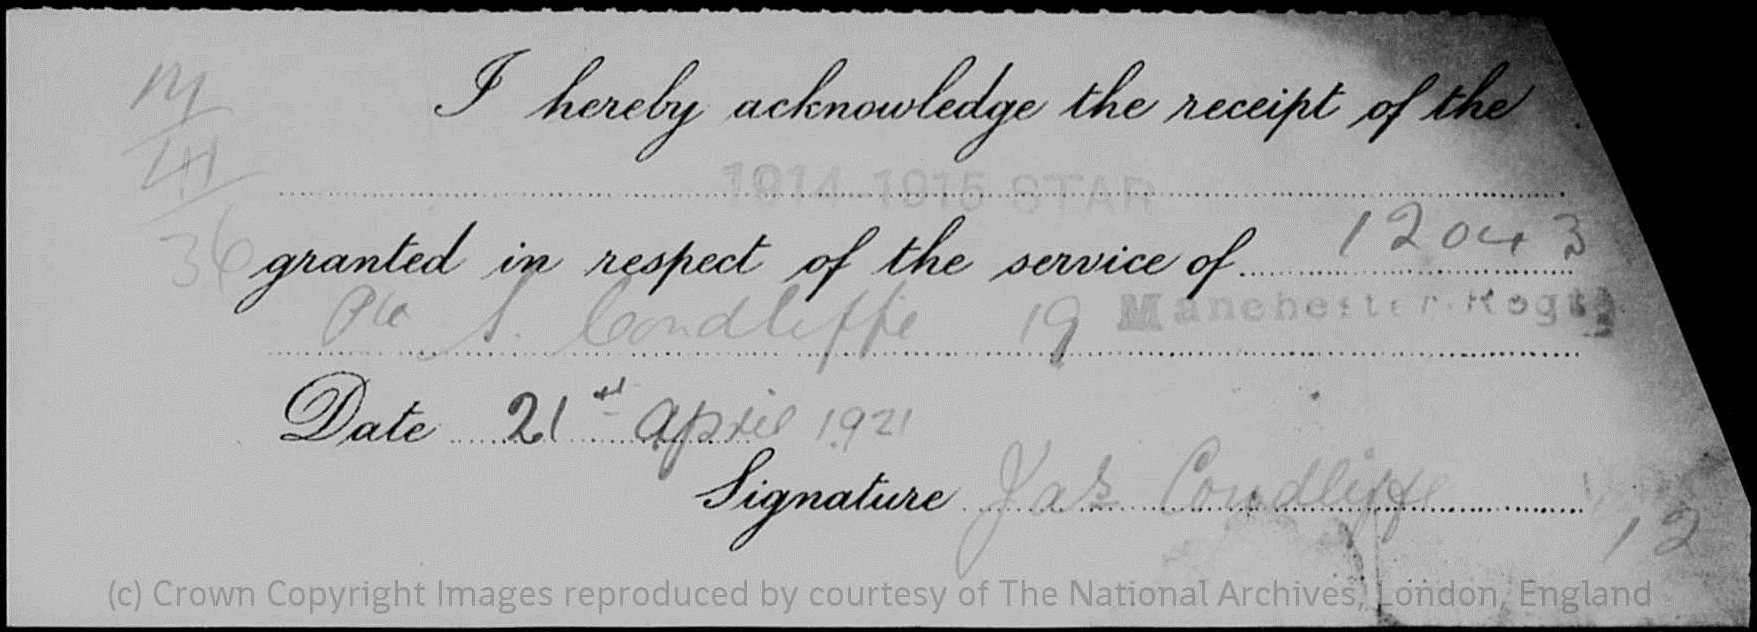 I hereby acknowledge the receipt of the
1914-1915 STAR
granted in respect of the service of 12043
Pte S. Condliffe 19 Manchester Regt
Date 21st April 1921
Signature Jas Condliffe
12
M
III
36
(c) Crown Copyright Images reproduced by courtesy of The National Archives, London, England